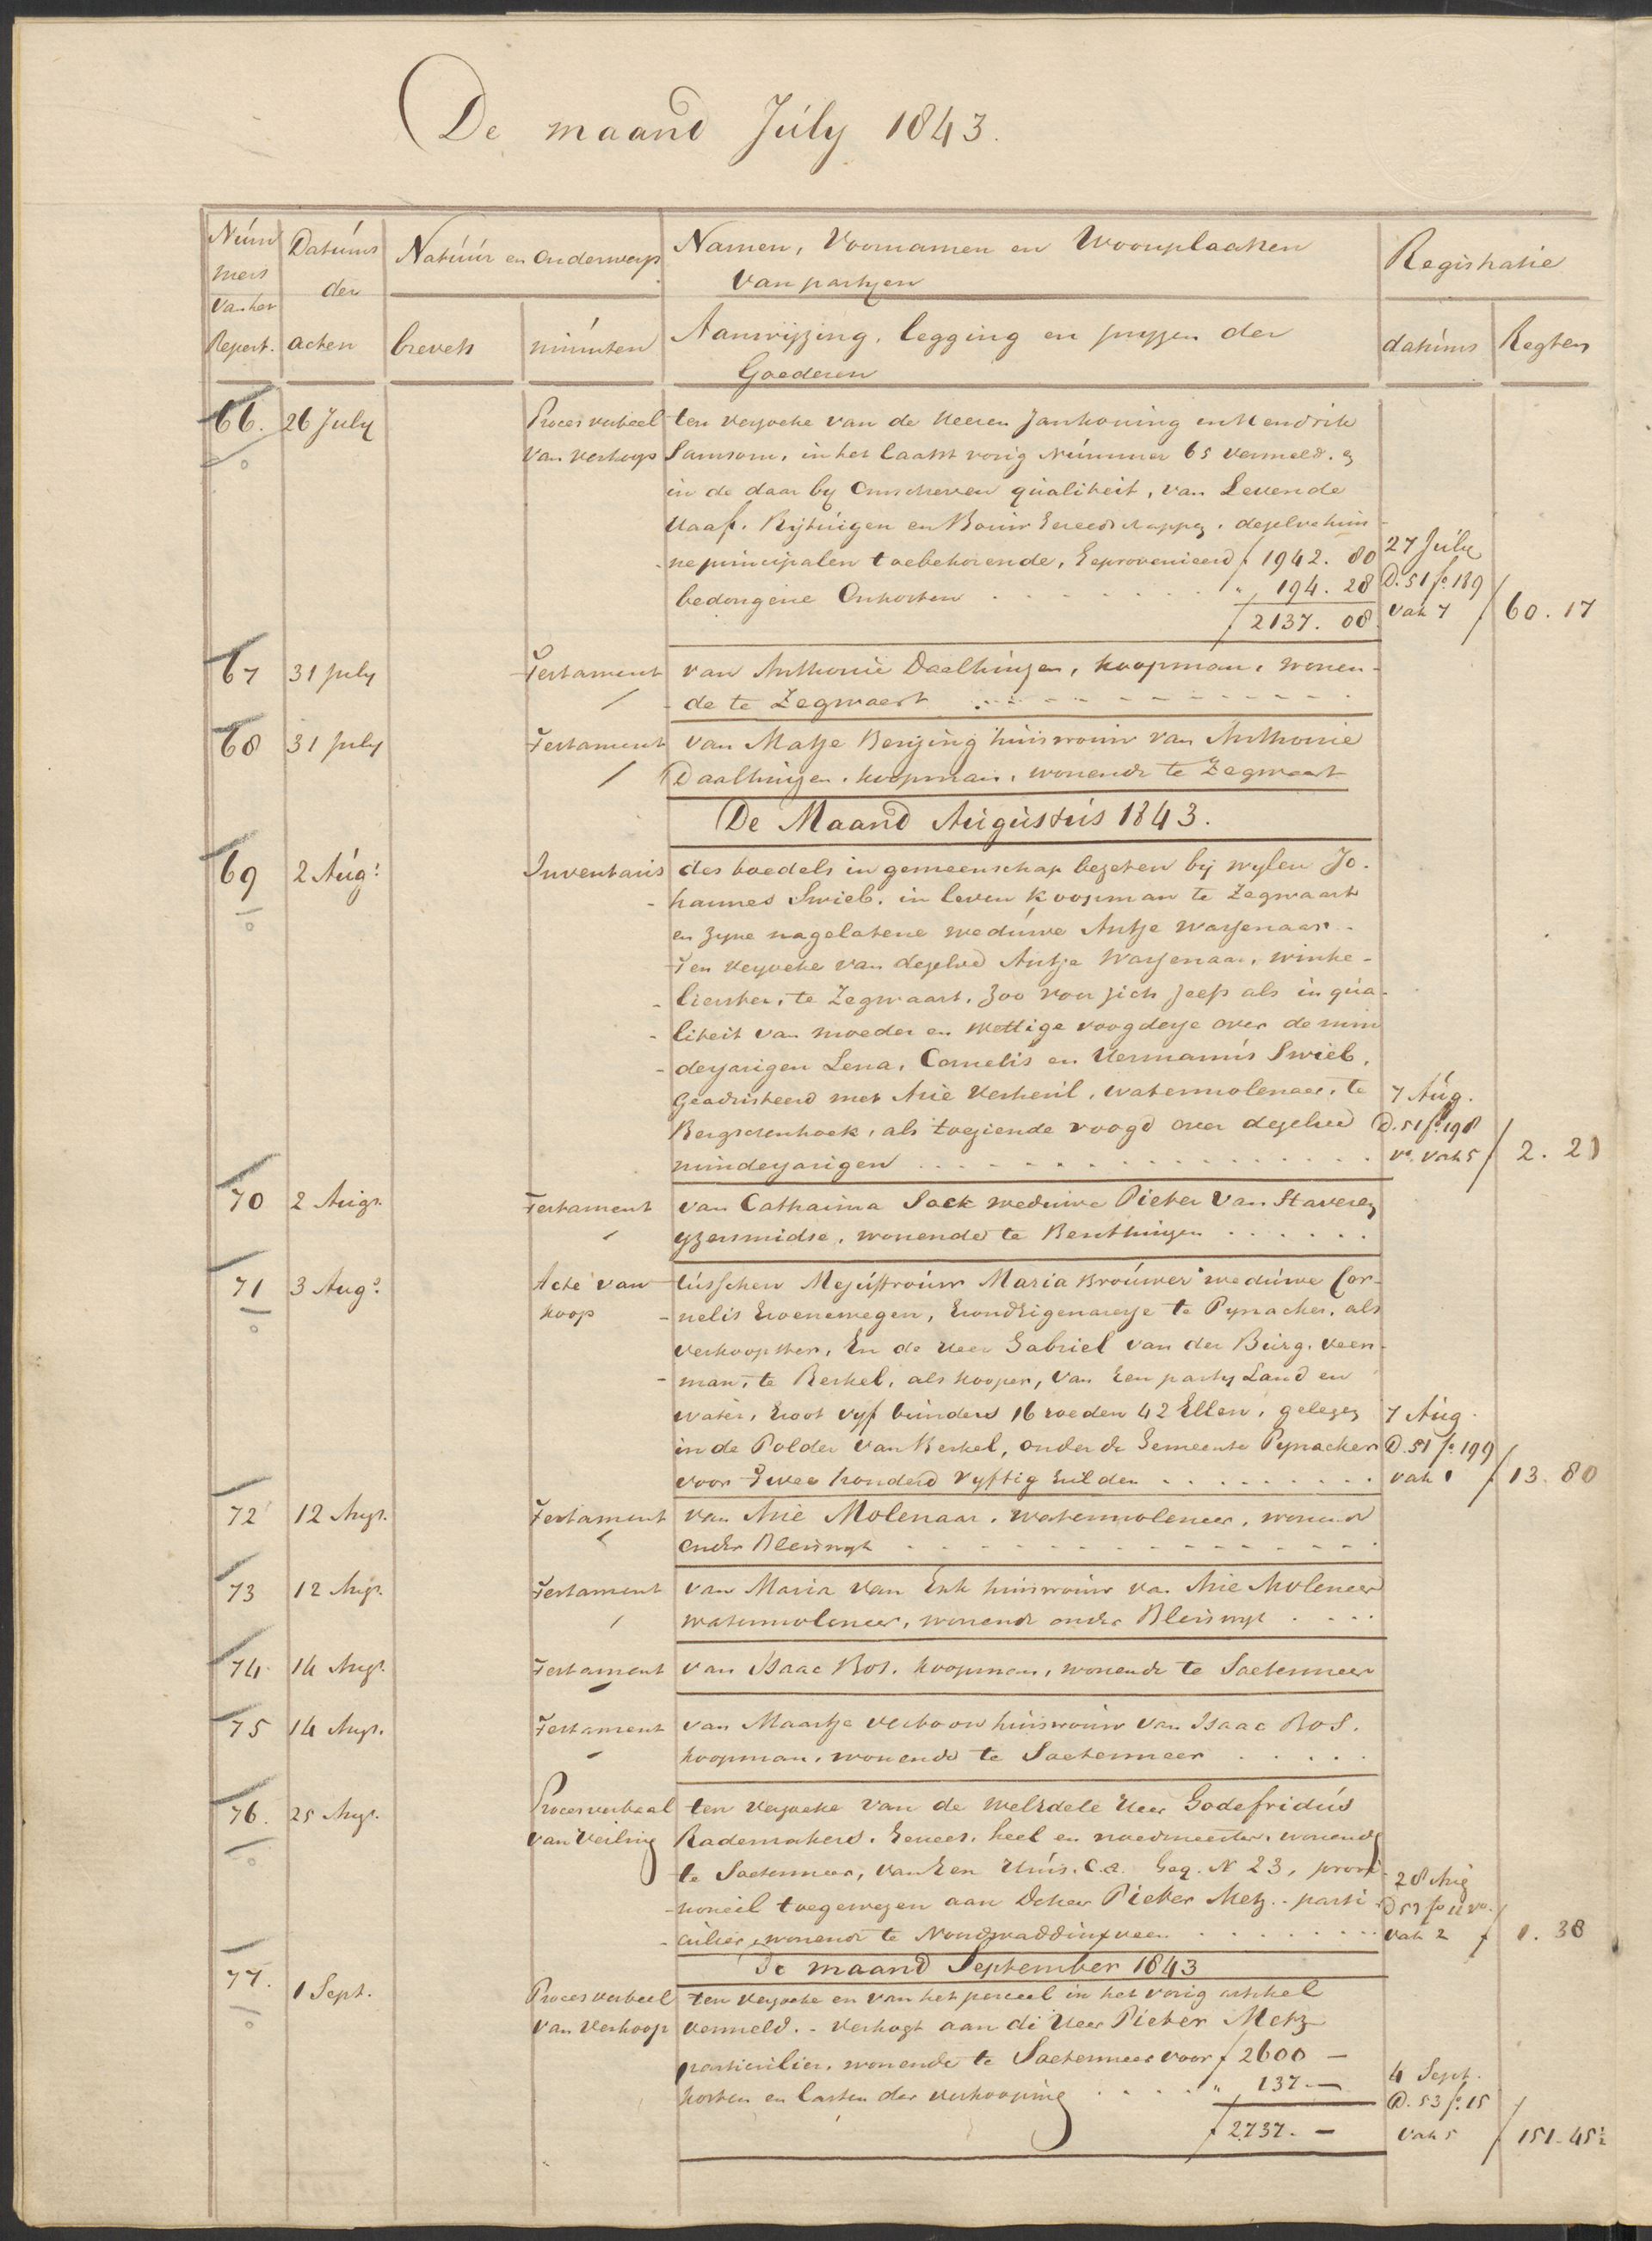 De maand July 1843.
Num Datums Natuur en Onderwerp Namen, Voornamen en Woonplaatsen Registratie
mers der van partyen
van het
Repert. acten brevets minuten Aanwijzing, legging en pryzen der datums Regten
Goederen
66. 26 July Proces verbaal ten verzoeke van de Heeren Jan Koning en Hendrik
van verkoop Samsom, in het laatst vorig Nummer 65 vermeld. en
in de daar by omschreven qualiteit, van Levende
Haaf. Rijtuigen en Bouw Gereedschappen, dezelve hun
ne principalen toebehorende, Geprovenieerd f 1942. 80 27 July
bedongene Onkosten . . . . . . . " 194. 28 D. 51 fo. 189
f 2137. 08 vak 7 f 60. 17
67 31 July Testament van Anthonie Daalhuizen, koopman, wonen-
de te Zegwaart
68 31 July Testament van Matje Benzing huisvrouw van Anthonie
Daalhuizen, koopman, wonende te Zegwaart
De Maand Augustus 1843.
69 2 Aug: Inventaris des boedels in gemeenschap bezeten bij wylen Jo-
hannes Swieb, in leven koopman te Zegwaart
en zyne nagelatene weduwe Antje Wassenaar.
Ten verzoeke van dezelve Antje Wassenaar, winke-
lierster, te Zegwaart, zoo voor zich zelf als in qua-
liteit van moeder en wettige voogdesse over de min
derjarigen Lena, Cornelis en Hermanus Swieb,
Geadsisteerd met Arie Verheul, watermolenaar, te 7 Aug.
Bergschenhoek, als toeziende voogd over dezelve D. 51 fo. 198
minderjarigen vo. vak 5 f 2. 21
70 2 Augs. Testament van Catharina Sack weduwe Pieter van Staveren
yzersmidse, wonende te Benthuizen . . . . . .
71 3 Augs. Acte van tusschen Mejuffrouw Maria Brouwer weduwe Cor-
koop nelis Groenewegen, Grondeigenaresse te Pynacker, als
verkoopster, En de Heer Gabriel van der Burg, veen-
man, te Berkel, als kooper, van Een party Land en
water, Groot vyf bunders 16 roeden 42 Ellen, gelegen 7 Aug.
in de Polder van Berkel, onder de Gemeente Pynacker D. 51 fo. 199
voor Twee honderd vyftig Gulden . . . . . . . . vak 1 f 13. 80
72 12 Augs. Testament van Arie Molenaar, watermolenaar, wonende
onder Bleiswyk
73 12 Augs. Testament van Maria van Erk huisvrouw van Arie Molenaar
watermolenaar, wonende onder Bleiswyk . . . .
74 14 Augs. Testament van Isaac Bos, koopman, wonende te Soetermeer
75 14 Augs. Testament van Maartje Verboon huisvrouw van Isaac Bos,
koopman, wonende te Soetermeer . . . . .
76. 25 Augs. Proces verbaal ten verzoeke van de WelEdele Heer Godefridus
van Veiling Rademakers, Genees, heel en vroedmeester, wonende
te Soetermeer, van Een Huis. C.a. Geq. N 23, provi 28 Aug
sioneel toegewezen aan de Heer Pieter Metz, parti- D 53 fo 11 vo.
culier, wonende te Noordwaddinxveen . . . . . . . vak 2 f 1. 38
De maand September 1843
77. 1 Sept. Proces verbaal ten verzoeke en van het perceel in het vorig artikkel
van Verkoop vermeld. - Verkogt aan de Heer Pieter Metz
particulier, wonende te Soetermeer voor f 2600 —
Kosten en lasten der verkooping . . . . . " 137. — 4 Sept.
D. 53 fo. 15
f 2737. — vak 5 f 151. 45½